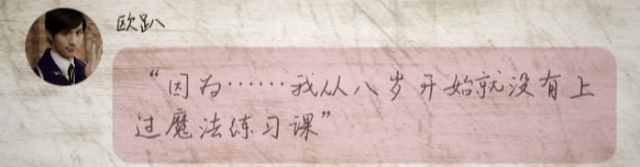 欧趴
“因为……我从八岁开始就没有上
过魔法练习课”